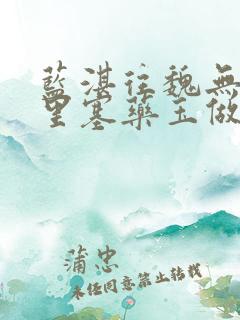 藍湛往魏無
里塞藥玉做
蒲忠
未經同意禁止轉載